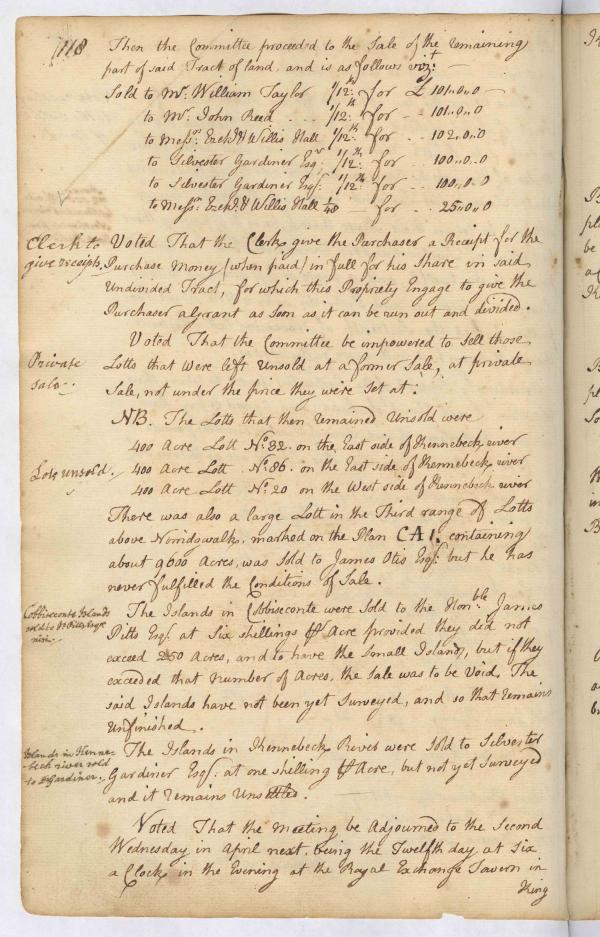 118
Then the Committee proceeded to the Sale of the remaining
part of said Tract of land, and is as follows vizt
Sold to Mr. William Taylor 1/12th for £101..0..0
to Mr. John Reed 1/12th for 101..0..0
to Messrs. Ezekl. & Willis Hall 1/12th for 102..0..0
to Silvester Gardiner Esqr. 1/12th for 100..0..0
to Silvester Gardiner Esqr. 1/12th for 100..0..0
to Messrs. Ezekl. & Willis Hall 1/48 for 25..0..0
Clerk to
give receipts.
Voted That the Clerk give the Purchaser a Receipt for the
Purchase Money (when paid) in full for his Share in said
Undivided Tract, for which this Propriety Engage to give the
Purchaser a Grant as soon as it can be run out and divided.
Private
sale.
Voted That the Committee be impowered to sell those
Lotts that were left Unsold at a former Sale, at private
Sale, not under the price they were Set at.
NB. The Lotts that then remained Unsold were
Lots unsold.
400 Acre Lott No. 32. on the East side of Kennebeck river
400 Acre Lott No. 86. on the East side of Kennebeck river
400 Acre Lott No. 20 on the West side of Kennebeck river
There was also a large Lott in the Third range of Lotts
above Norridgwalk, marked on the Plan CA1. containing
about 9600 Acres, was Sold to James Otis Esqr. but he has
never fulfilled the Conditions of Sale.
Cobbiseconte Islands
sold to
The Islands in Cobbiseconte were Sold to the Honble James
Pitts Esqr. at Six shillings per Acre provided they did not
exceed 250 Acres, and to have the Small Island, but if they
exceeded that number of Acres, the Sale was to be Void. The
said Islands have not been yet Surveyed, and so that remains
Unfinished.
Islands in Kenne-
-beck river sold
to Gardiner.
The Islands in Kennebeck River were Sold to Silvester
Gardiner Esqr. at one shilling per Acre, but not yet Surveyed
and it remains Unsettled.
Voted That the meeting be Adjourned to the Second
Wednesday in April next, being the Twelfth day, at Six
a Clock in the Evening at the Royal Exchange Tavern in
King